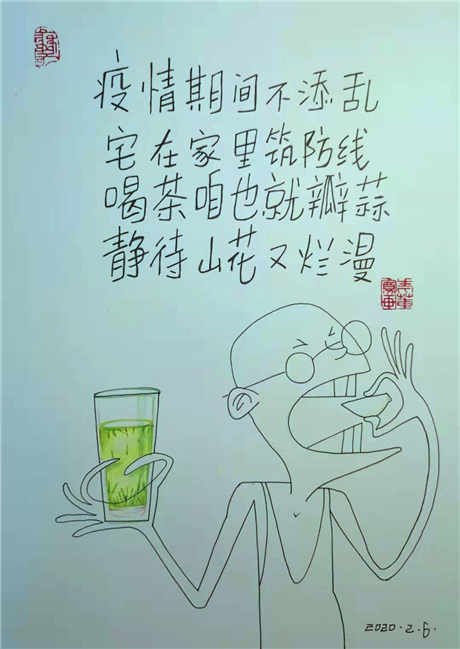 疫情期间不添乱
宅在家里筑防线
喝茶咱也就瓣蒜
静待山花又烂漫
2020.2.6.